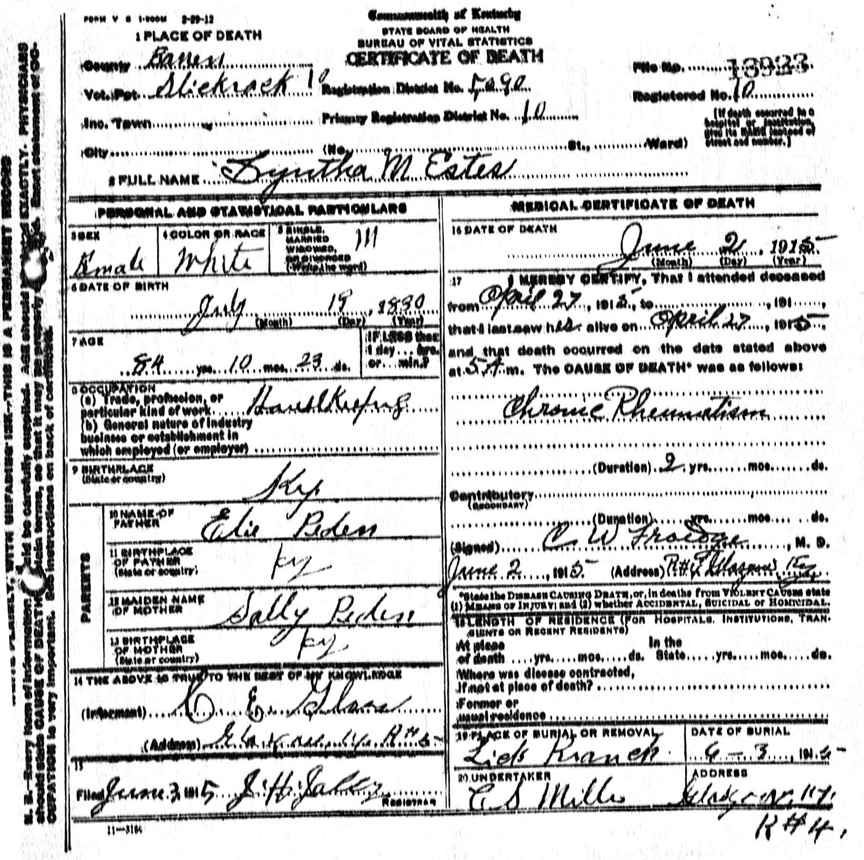 FORM V S 1-500M 2-29-12
Commonwealth of Kentucky
STATE BOARD OF HEALTH
BUREAU OF VITAL STATISTICS
CERTIFICATE OF DEATH
1 PLACE OF DEATH
County Barren
Vot. Pct. Slickrock 10 Registration District No. 5090
File No. 13923
Registered No. 10
Inc. Town Primary Registration District No. 10
[If death occurred in a hospital or institution, give its NAME instead of street and number.]
City (No. St., Ward)
2 FULL NAME Syntha M Estes
PERSONAL AND STATISTICAL PARTICULARS
3 SEX Female
4 COLOR OR RACE White
5 SINGLE, MARRIED WIDOWED, OR DIVORCED (Write the word) M
6 DATE OF BIRTH
July 19, 1830
(Month) (Day) (Year)
7 AGE
84 yrs. 10 mos. 23 ds.
IF LESS than 1 day... hrs. or... min.?
8 OCCUPATION
(a) Trade, profession, or particular kind of work Housekeeping
(b) General nature of industry business or establishment in which employed (or employer)
9 BIRTHPLACE
(State or country) Ky
PARENTS
10 NAME OF FATHER Elie Peden
11 BIRTHPLACE OF FATHER (State or country) Ky
12 MAIDEN NAME OF MOTHER Sally Peden
13 BIRTHPLACE OF MOTHER (State or country) Ky
14 THE ABOVE IS TRUE TO THE BEST OF MY KNOWLEDGE
(Informant) C. E. Glass
(Address) R#5
15
Filed June 3, 1915 J. H. REGISTRAR
11-3184
MEDICAL CERTIFICATE OF DEATH
16 DATE OF DEATH
June 2, 1915
(Month) (Day) (Year)
17 I HEREBY CERTIFY, That I attended deceased
from April 27, 1915, to , 191
that I last saw her alive on April 27, 1915
and that death occurred on the date stated above
at 5 A m. The CAUSE OF DEATH* was as follows:
Chronic Rheumatism
(Duration) 2 yrs. mos. ds.
Contributory
(SECONDARY)
(Duration) yrs. mos. ds.
(Signed) C W Froedge, M. D.
June 2, 1915 (Address) Glasgow Ky
*State the DISEASE CAUSING DEATH, or, in deaths from VIOLENT CAUSES state
(1) MEANS OF INJURY; and (2) whether ACCIDENTAL, SUICIDAL or HOMICIDAL.
18 LENGTH OF RESIDENCE (FOR HOSPITALS, INSTITUTIONS, TRANSIENTS OR RECENT RESIDENTS)
At place of death yrs. mos. ds. In the State yrs. mos. ds.
Where was disease contracted,
If not at place of death?
Former or
usual residence
19 PLACE OF BURIAL OR REMOVAL Lick Branch
DATE OF BURIAL 6-3 1915
20 UNDERTAKER C S Mills
ADDRESS Glasgow, Ky.
R#4.